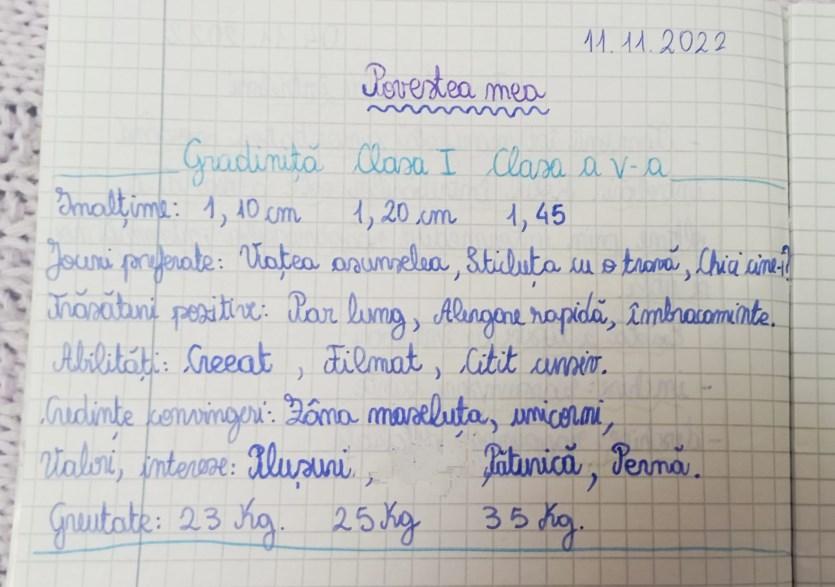 11.11.2022
Povestea mea
Gradiniță Clasa I Clasa a V-a
Inalțime: 1,10 cm 1,20 cm 1,45
Jouri preferate: Vațea asunselea, Sticluța cu otravă, Chici cine-i?
Trăsătuni pozitive: Par lung, Alergare rapidă, îmbracominte.
Abilități: Creeat, Filmat, Citit cursiv.
Credințe convingeri: Zâna maseluța, unicorni,
Valori, interese: Plușuri, Pătunică, Pernă.
Greutate: 23 Kg. 25 Kg 35 Kg.